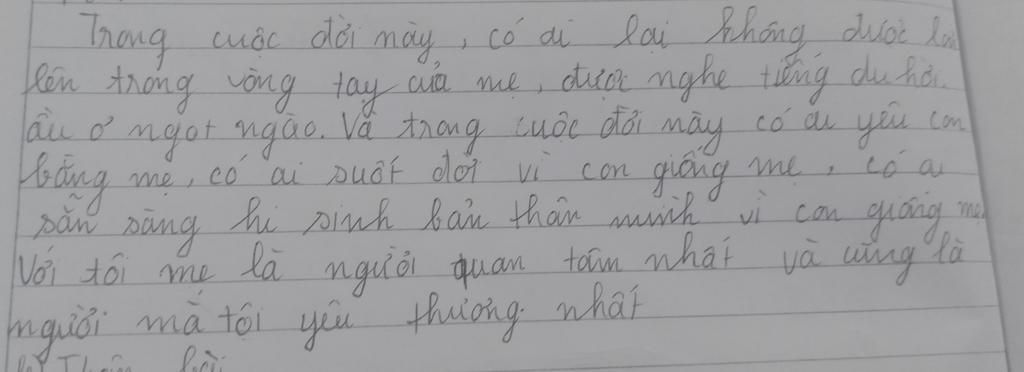 Trong cuộc đời này, có ai lại không được lớn
lên trong vòng tay của mẹ, được nghe tiếng du hời
ầu ơ ngọt ngào. Và trong cuộc đời này có ai yêu con
bằng mẹ, có ai suốt đời vì con giống mẹ, có ai
sẵn sàng hi sinh bản thân mình vì con giống mẹ
Với tôi mẹ là người quan tâm nhất và cũng là
người mà tôi yêu thương nhất